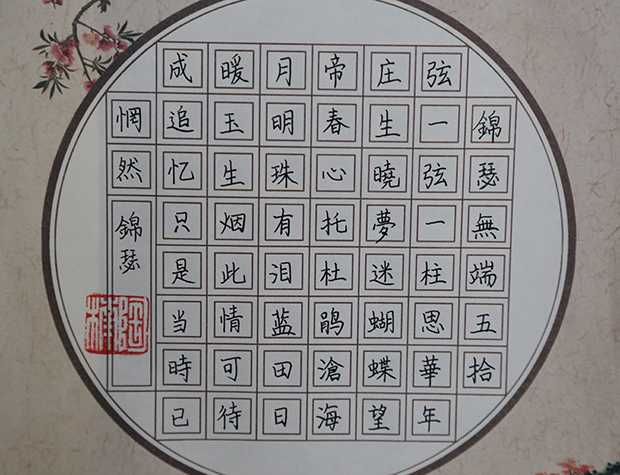 錦瑟無端五拾
弦一弦一柱思華年
庄生曉夢迷蝴蝶望
帝春心托杜鵑滄海
月明珠有泪蓝田日
暖玉生烟此情可待
成追忆只是当時已
惘然
錦瑟